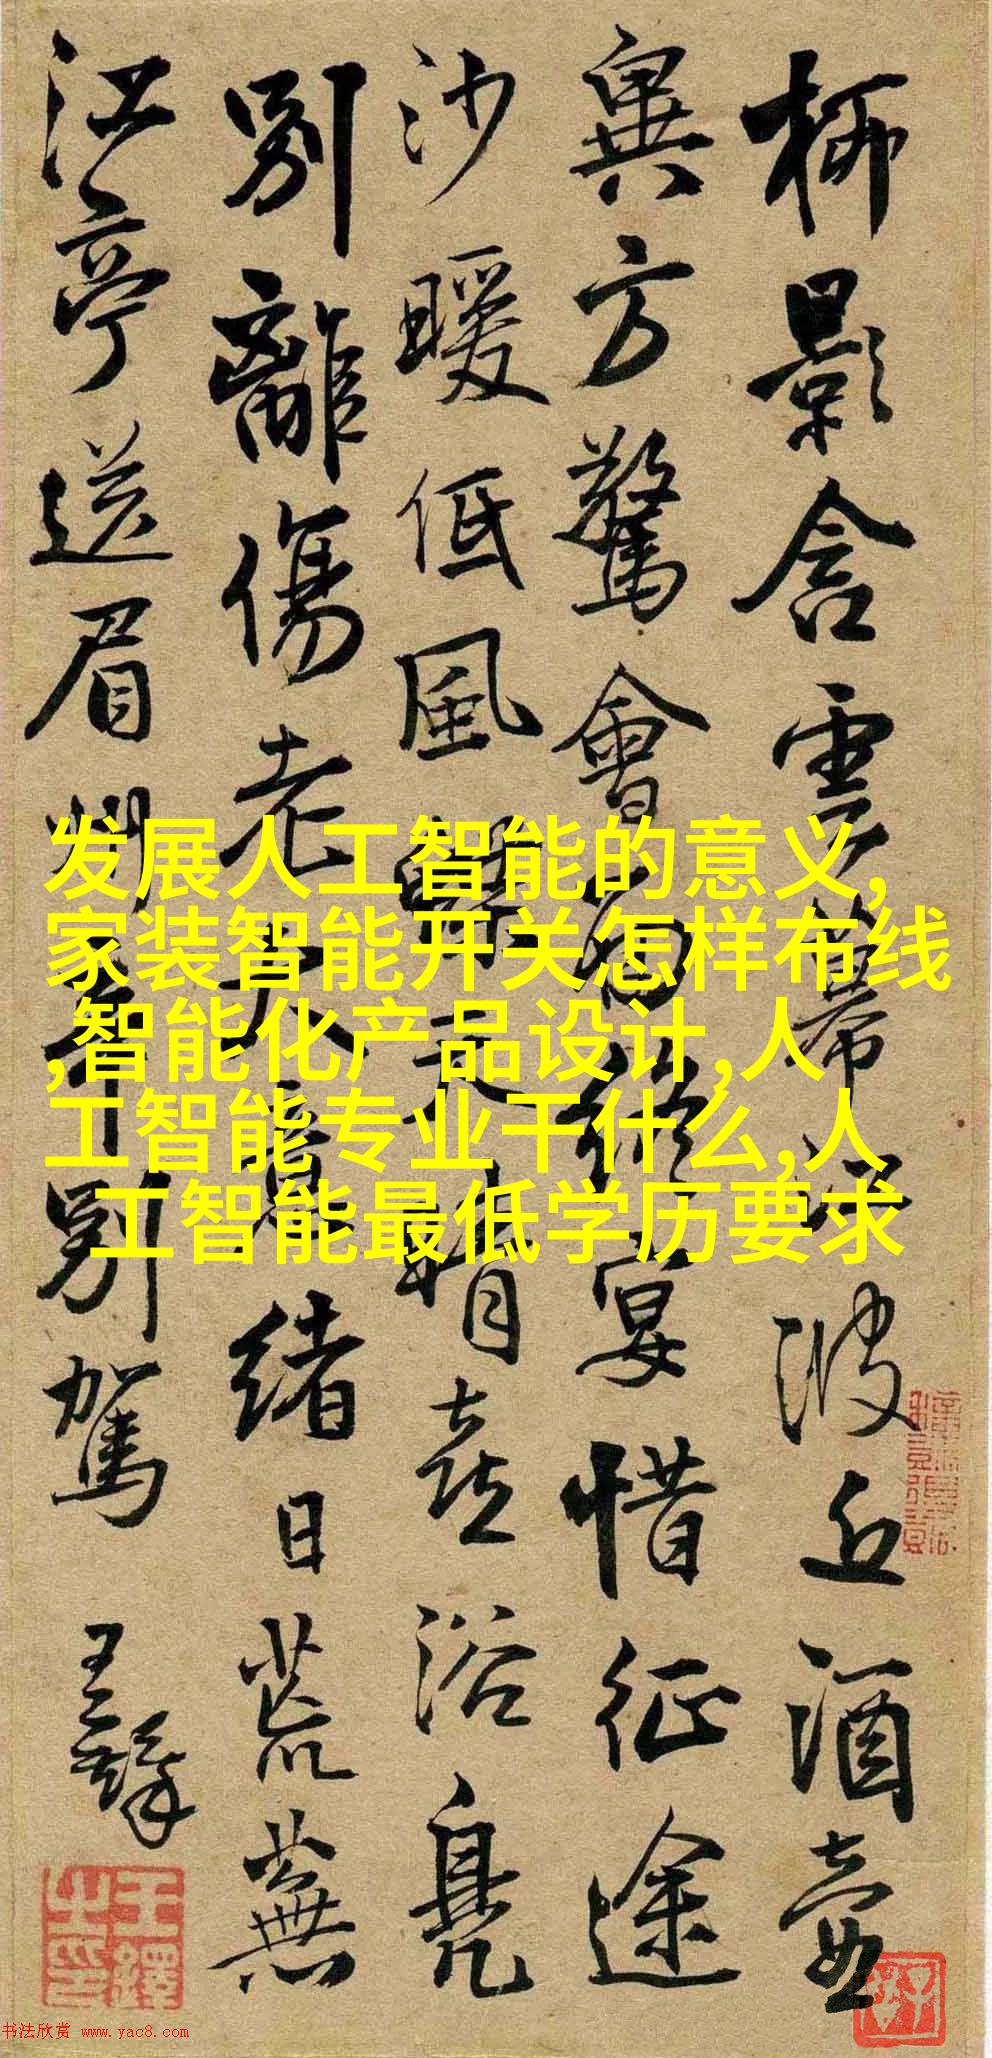 柳影含雲幕江波近酒壺
異方驚會面終宴惜征途
沙暖低風蝶天晴喜浴鳧
別離傷老大意緒日荒蕪
江亭送眉州辛別駕 王鐸
王鐸之印
发展人工智能的意义,
家装智能开关怎样布线
,智能化产品设计,人
工智能专业干什么,人
工智能最低学历要求
书法欣赏 www.yac8.com